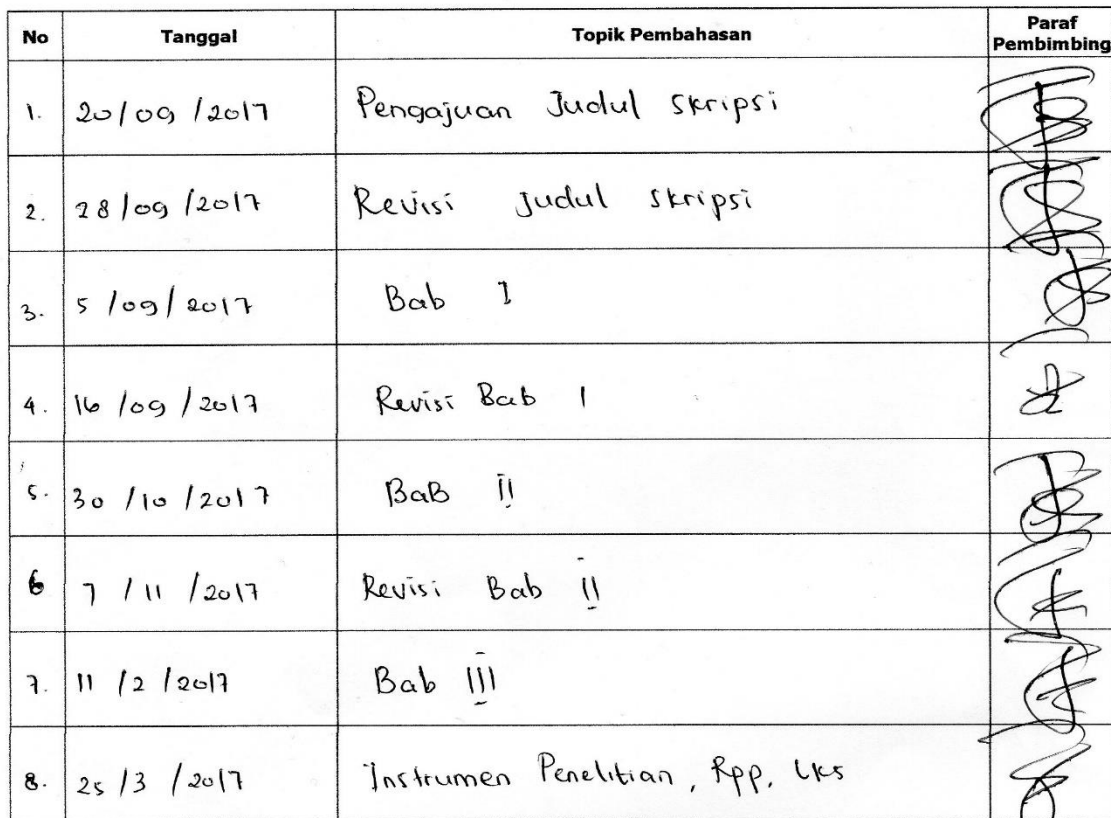 No Tanggal Topik Pembahasan Paraf Pembimbing
1. 20/09/2017 Pengajuan Judul Skripsi
2. 28/09/2017 Revisi Judul Skripsi
3. 5/09/2017 Bab I
4. 16/09/2017 Revisi Bab I
5. 30/10/2017 BaB II
6 7/11/2017 Revisi Bab II
7. 11/2/2017 Bab III
8. 25/3/2017 Instrumen Penelitian, Rpp, LKS